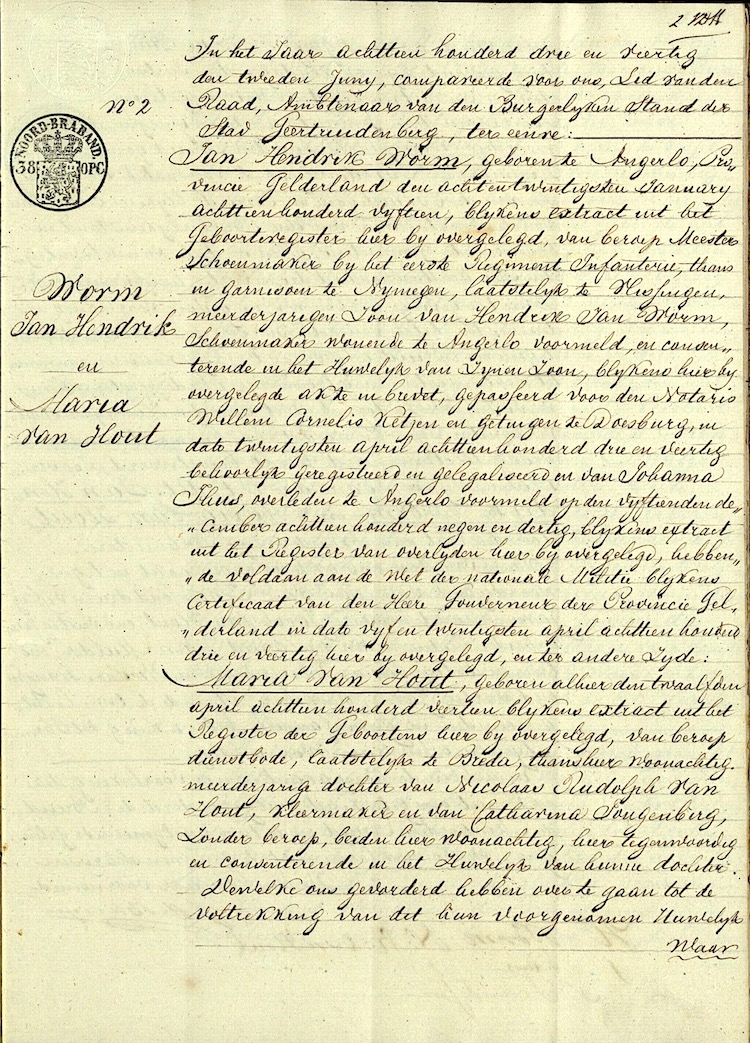 In het Jaar achttien honderd drie en veertig
den tweeden Juny, compareerde voor ons, Lid van den
N° 2
Raad, Ambtenaar van den Burgerlyken Stand der
Stad Geertruidenberg, ter eenre:
NOORD-BRABAND.
38 OPC
Jan Hendrik Worm, geboren te Angerlo, Pro„
vincie Gelderland den acht en twintigsten January
achttien honderd vyftien, blykens extract uit het
Geboorteregister hier by overgelegd, van beroep Meester
Schoenmaker by het eerste Regiment Infanterie, thans
in garnisoen te Nymegen, laatstelyk te Vlissingen,
meerderjarigen Zoon van Hendrik Jan Worm,
Schoenmaker wonende te Angerlo voormeld, en consen„
terende in het Huwelyk van Zynen Zoon, blykens hier by
overgelegde akte in brevet, gepasseerd voor den Notaris
Willem Cornelis Ketjen en getuigen te Doesburg, in
dato twintigsten april achttien honderd drie en veertig
behoorlyk geregistreerd en gelegaliseerd en van Johanna
Thus, overleden te Angerlo voormeld op den vyftienden de„
„cember achttien honderd negen en dertig, blykens extract
uit het Register van overlyden hier by overgelegd, hebben„
„de voldaan aan de Wet der nationale Militie blykens
Certificaat van den Heere Gouverneur der Provincie Gel„
„derland in dato vyf en twintigsten april achttien honderd
drie en veertig hier by overgelegd, en ter andere Zyde:
Maria Van Hout, geboren alhier den twaalfden
april achttien honderd veertien blykens extract uit het
Register der Geboortens hier by overgelegd, van beroep
dienstbode, laatstelyk te Breda, thans hier woonachtig.
meerderjarig dochter van Nicolaas Rudolph Van
Hout, Kleermaker en van Catharina Gougenberg,
Zonder beroep, beiden hier woonachtig, hier tegenwoordig
en consenterende in het Huwelyk van hunne dochter.
Dewelke ons gevorderd hebben over te gaan tot de
voltrekking van dit hun voorgenomen Huwelyk
Waar
Worm
Jan Hendrik
en
Maria
van Hout